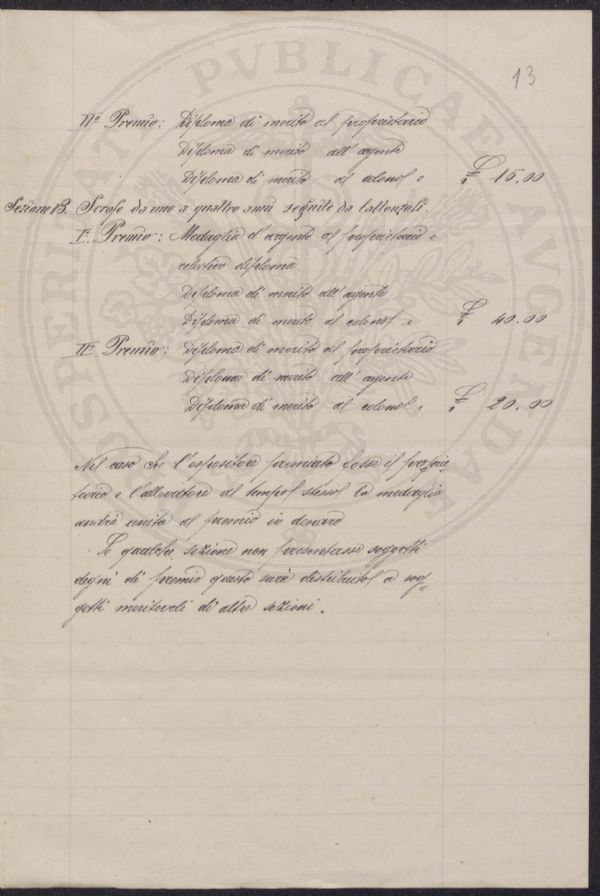 13
IIº Premio: Diploma di merito al proprietario
Diploma di merito all' agente
Diploma di merito al colono e £ 15.00
Sezione 13. Scrofe da uno a quattro anni seguite da lattonzoli.
Iº Premio: Medaglia d'argento al proprietario e
relativo diploma.
Diploma di merito all' agente
Diploma di merito al colono e £ 40.00
IIº Premio: Diploma di merito al proprietario
Diploma di merito all' agente
Diploma di merito al colono e £ 20.00
Nel caso che l'espositore premiato fosse il proprie-
tario e l'allevatore al tempo stesso la medaglia
andrà unita al premio in denaro
Se qualche sezione non presentasse soggetti
degni di premio questo sarà distribuito a sog-
getti meritevoli di altre sezioni.
PVBLICAE AVGENDAE